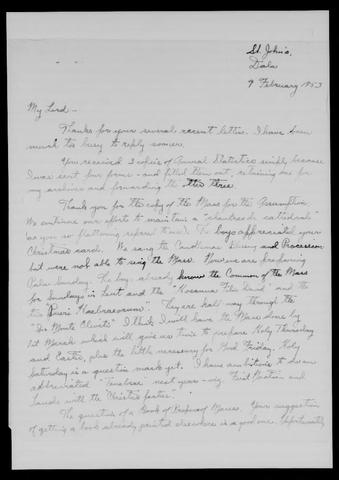 St. John's,
Dala
9 February 1953
My Lord—
Thanks for your several recent letters. I have been
much too busy to reply sooner.
You received 3 copies of Annual Statistics simply because
I was sent four forms - and filled them out, retaining one for
my archives and forwarding the other three.
Thank you for the copy of the Mass for the Assumption.
We continue our efforts to maintain a
as you so flatteringly referred to us. The boys appreciated your
Christmas card. We sang the Candlemas Blessing and Procession
but were not able to sing the Mass. Now we are preparing
Palm Sunday. The boys already know the Common of the Mass
for Sundays in Lent and the "Hosanna Filio David" and the
two "Pueri Hebraeorum". They are half way through the
"In Monte Oliveti". I think I will have the Mass done by
1st March which will give us time to prepare Holy Thursday
and Easter, plus the little necessary for Good Friday. Holy
Saturday is a question mark yet. I have ambitions to do an
abbreviated "Tenebrae" next year - viz, First Nocturn and
Lauds with the "Christus factus".
The question of a Book of Masses. Your suggestion
of getting a book already printed elsewhere is a good one. Unfortunately